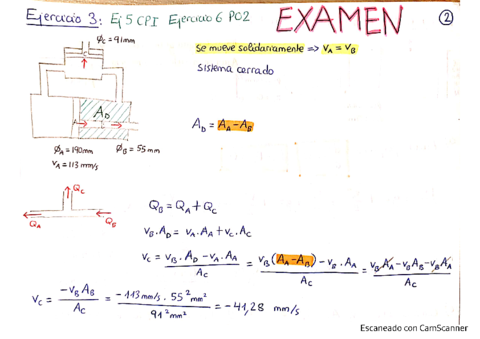 Ejercicio 3: Ej 5 CPI Ejercicio 6 PO2
EXAMEN
2
Øc = 91mm
Se mueve solidariamente => VA = VB
sistema cerrado
AD
AD = AA - AB
ØA = 190mm ØB = 55 mm
VA = 113 mm/s
Qc
QA QB
QB = QA + Qc
VB · AD = VA · AA + Vc · Ac
Vc = (VB · AD - VA · AA) / Ac = (VB (AA - AB) - VB · AA) / Ac = (VB AA - VB AB - VB AA) / Ac
Vc = (-VB AB) / Ac = (-113 mm/s · 55² mm²) / (91² mm²) = -41,28 mm/s
Escaneado con CamScanner